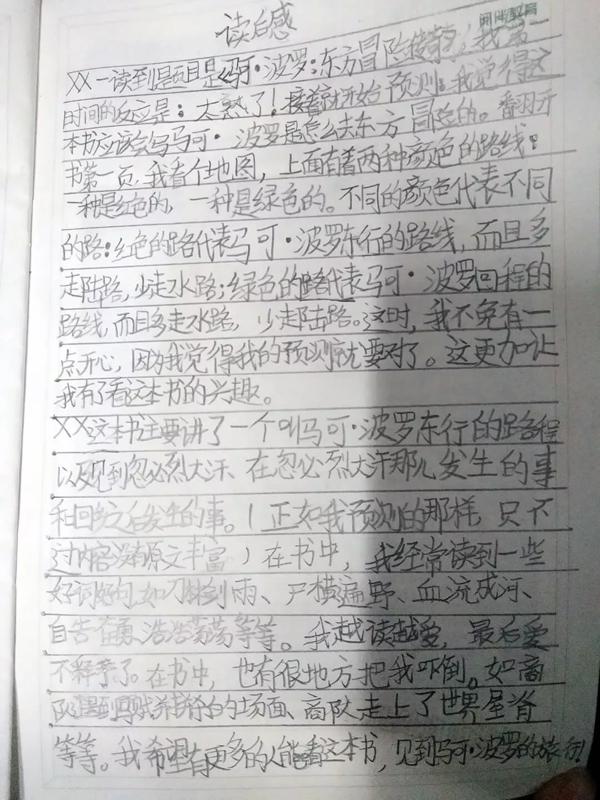 读后感
XX一读到题目是《马可·波罗:东方冒险传奇》,我第一
时间的反应是:太熟了!接着就开始预测:我觉得这
本书应该会写马可·波罗是怎么去东方冒险的。翻开
书第一页,我看了地图,上面有着两种颜色的路线:
一种是红色的,一种是绿色的。不同的颜色代表不同
的路:红色的路代表马可·波罗东行的路线,而且多
走陆路,少走水路;绿色的路代表马可·波罗回程的
路线,而且多走水路,少走陆路。这时,我不免有一
点开心,因为我觉得我的预测就要对了。这更加让
我有了看这本书的兴趣。
XX这本书主要讲了一个叫马可·波罗东行的路程
以及见到忽必烈大汗、在忽必烈大汗那儿发生的事
和回去之后发生的事。(正如我预测的那样,只不
过内容没有原文丰富)在书中,我经常读到一些
好词好句,如刀林剑雨、尸横遍野、血流成河、
自告奋勇、浩浩荡荡等等。我越读越爱,最后爱
不释手了。在书中,也有很地方把我吓倒。如商
队遇到的场面、商队走上了世界屋脊
等等。我希望有更多的人能看这本书,见到马可·波罗的旅行!